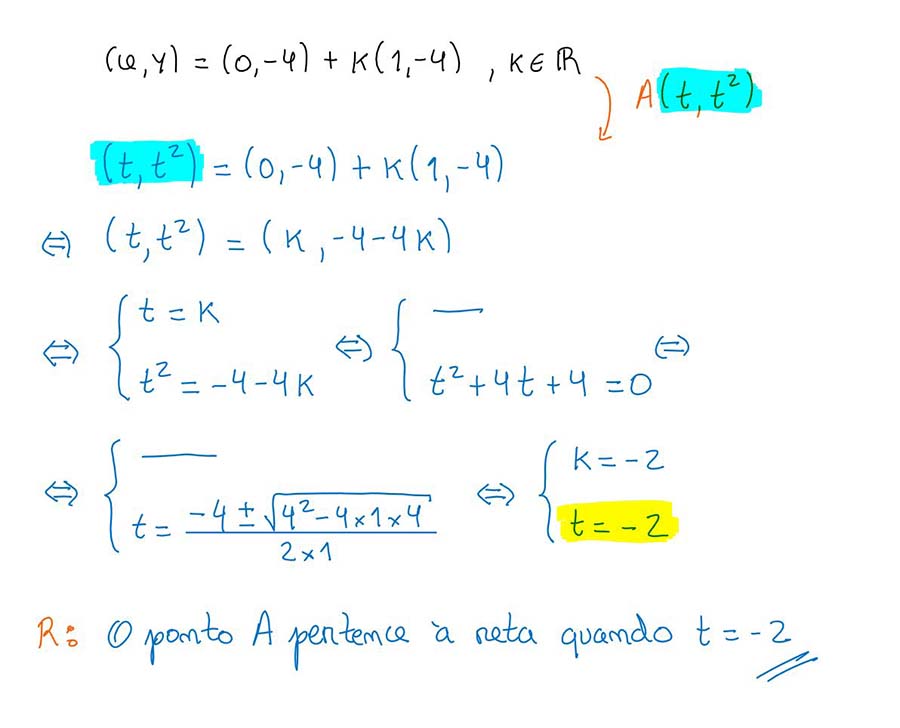 (x,y) = (0,-4) + K(1,-4) , K∈ℝ
A(t,t²)
(t,t²) = (0,-4) + K(1,-4)
⇔ (t,t²) = (K,-4-4K)
⇔ { t = K ; t² = -4-4K ⇔ { — ; t²+4t+4=0 ⇔
⇔ { — ; t = (-4 ± √(4²-4×1×4))/(2×1) ⇔ { K=-2 ; t=-2
R: O ponto A pertence à reta quando t=-2